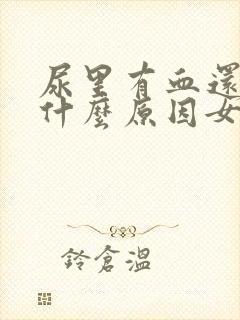 尿里有血還
什麼原因女
鈴倉溫